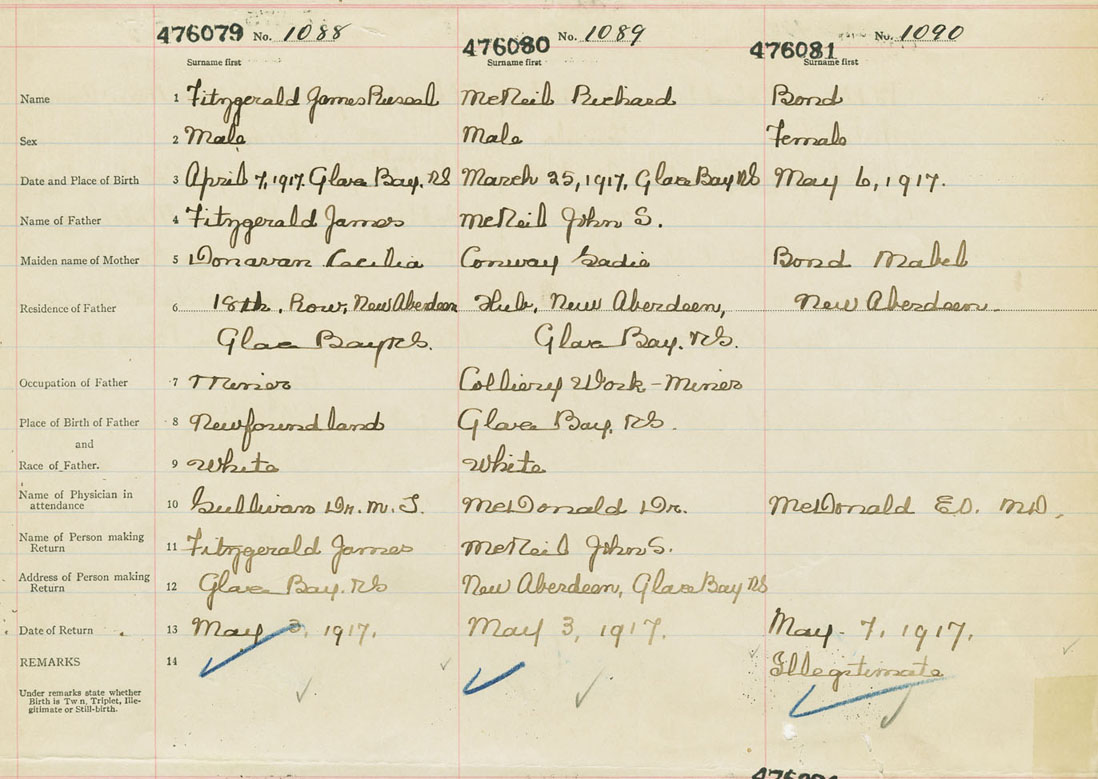 476079 No. 1088 476080 No. 1089 476081 No. 1090
Surname first Surname first Surname first
Name 1 Fitzgerald James Russal McNeil Richard Bond
Sex 2 Male Male Female
Date and Place of Birth 3 April 7, 1917. Glace Bay, NS March 25, 1917, Glace Bay NS May 6, 1917.
Name of Father 4 Fitzgerald James McNeil John S.
Maiden name of Mother 5 Donavan Cecilia Conway Sadie Bond Mabel
Residence of Father 6 18th, Row, New Aberdeen Hub, New Aberdeen, New Aberdeen.
Glace Bay NS. Glace Bay. NS.
Occupation of Father 7 Miner Colliery Work - Miner
Place of Birth of Father 8 Newfoundland Glace Bay, NS.
and
Race of Father. 9 White White
Name of Physician in
attendance 10 Sullivan Dr. M. T. McDonald Dr. McDonald E.O. M.D.
Name of Person making
Return 11 Fitzgerald James McNeil John S.
Address of Person making
Return 12 Glace Bay. NS New Aberdeen, Glace Bay NS
Date of Return 13 May 3, 1917. May 3, 1917. May 7, 1917.
REMARKS 14 Illegitimate
Under remarks state whether
Birth is Twin, Triplet, Ille-
gitimate or Still-birth.